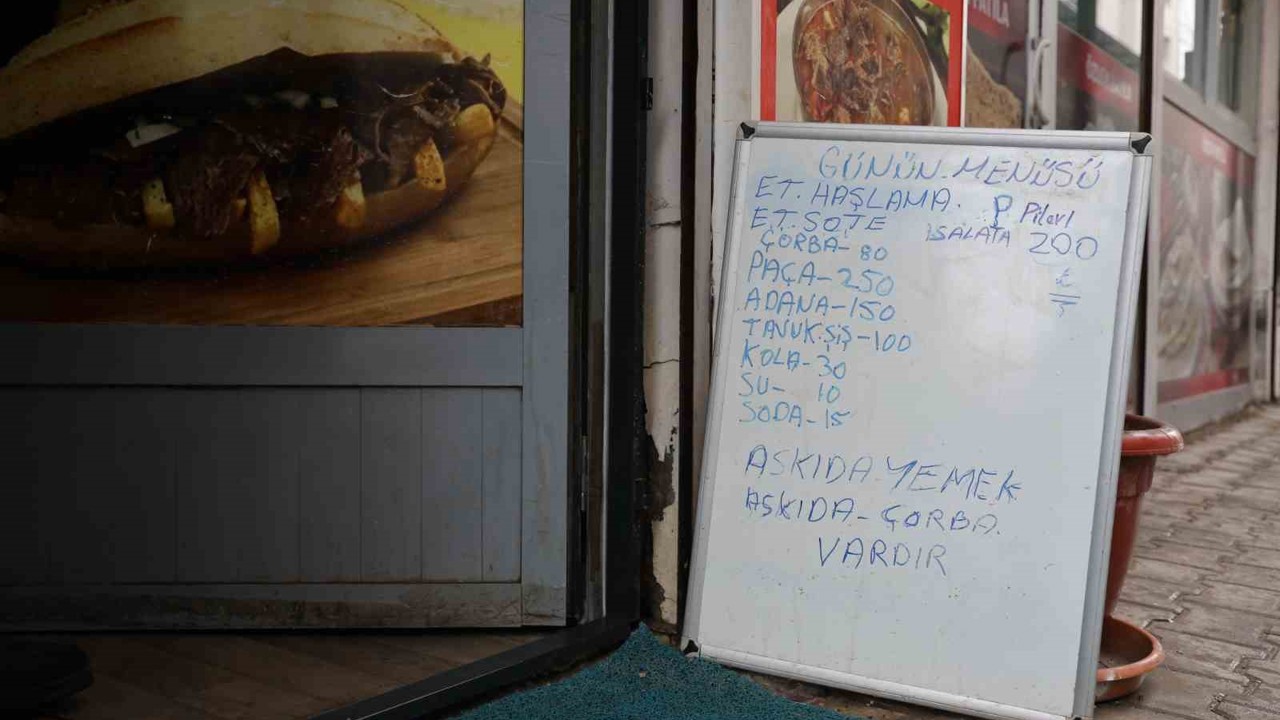 GÜNÜN.MENÜSÜ
ET.HAŞLAMA. P Pilavl
ET.SOTE SALATA 200
ÇORBA-80 ₺
PAÇA-250
ADANA-150
TAVUK.ŞİŞ-100
KOLA-30
SU- 10
SODA-15
ASKIDA YEMEK
ASKIDA-ÇORBA.
VARDIR